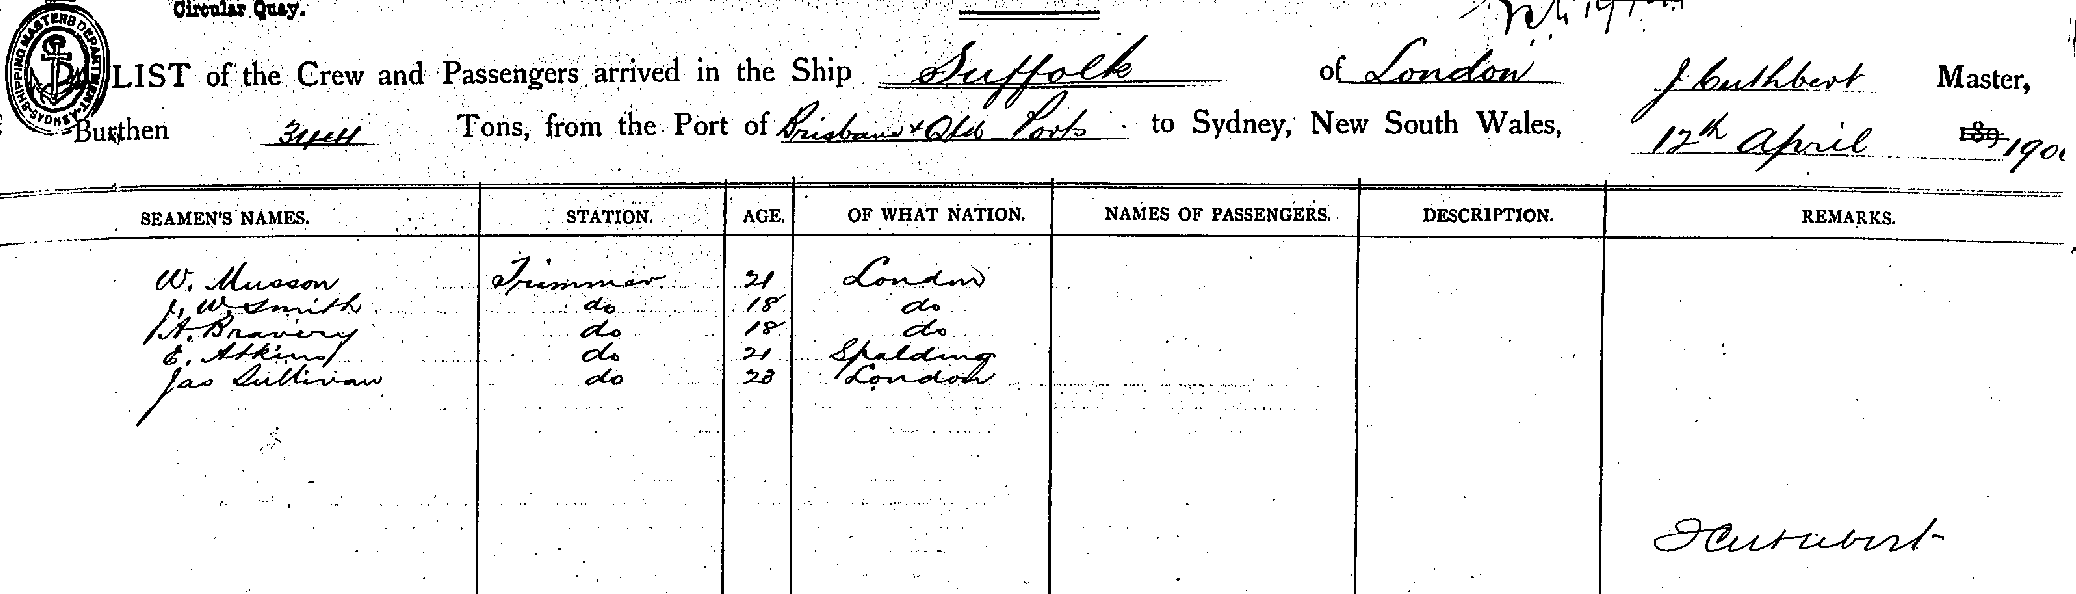 Circular Quay.
SHIPPING MASTERS DEPARTMENT SYDNEY
LIST of the Crew and Passengers arrived in the Ship Suffolk of London J Cuthbert Master,
Burthen Tons, from the Port of Brisbane & Qld Ports to Sydney, New South Wales, 12th April 189 190
SEAMEN'S NAMES. STATION. AGE. OF WHAT NATION. NAMES OF PASSENGERS. DESCRIPTION. REMARKS.
W. Musson Trimmer 21 London
J. W. Smith do 18 do
A. Bravery do 18 do
E. Atkins do 21 Spalding
Jas Sullivan do 23 London
J Cuthbert